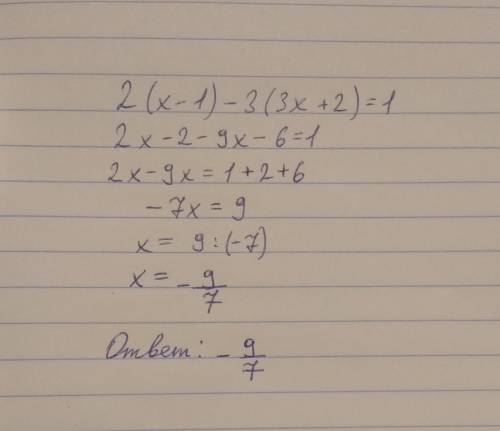 2(x-1)-3(3x+2)=1
2x-2-9x-6=1
2x-9x=1+2+6
-7x=9
x= 9:(-7)
x=-9/7
Ответ: -9/7